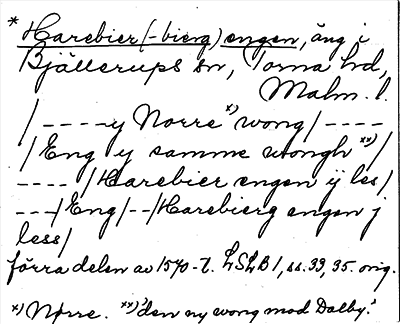 * Harebier (-bierg) engen, äng i
Bjällerups sn, Torna hd,
Malm. l.
/ - - - - y Norre x) wong / - - - -
/ Eng y samme wongh xx) /
- - - - / Harebier engen ij les /
- - - / Eng / - - / Harebierg engen j
less /
förra delen av 1570-t. LSLB 1, ss. 33, 35. orig.
x) Nørre. xx) 'den ny wong mod Dalby.'